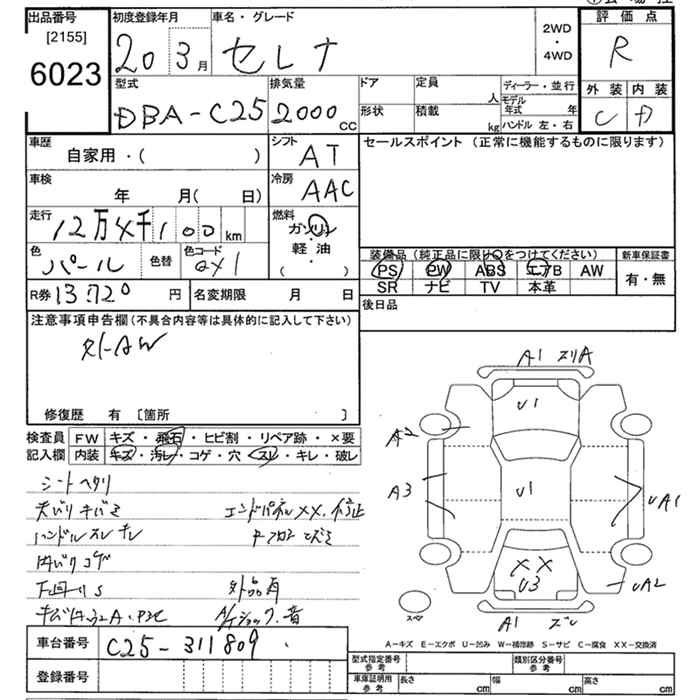 出品番号
[2155]
6023
初度登録年月
20 3月
車名・グレード
セレナ
2WD
・
4WD
評価点
R
外装 内装
C D
型式
DBA-C25
排気量
2000 CC
ドア
形状
定員
人
積載
kg
ディーラー・並行
モデル年式 年
ハンドル 左・右
車歴
自家用・( )
シフト
AT
セールスポイント (正常に機能するものに限ります)
車検
年 月( 日)
冷房
AAC
走行
12万4千100km
燃料
ガソリン
・
軽油
( )
色
パール
色替
色コード
QX1
装備品(純正品に限り○をつけてください)
PS PW ABS エアB AW
SR ナビ TV 本革
新車保証書
有・無
R券 13.720 円
名変期限 月 日
後日品
注意事項申告欄(不具合内容等は具体的に記入して下さい)
外-AW
修復歴 有 [箇所 ]
検査員
記入欄
FW キズ・飛石・ヒビ割・リペア跡・×要
内装 キズ・汚レ・コゲ・穴・スレ・キレ・破レ
シートヘタリ
天バリキバミ
ハンドルスレ キレ
内バリコゲ
下回りS
エンドパネルXX.修正
外品有
A/Cショック.音
A1 スリA
U1
A2
A3
U1
UA1
XX
U3
UA2
A1 ズレ
スペア
車台番号
C25-311809
登録番号
A－キズ E－エクボ U－凹み W－補修跡 S－サビ C－腐食 XX－交換済
型式指定番号
参考
類別区分番号
参考
車庫証明用
参考
長さ cm
幅 cm
高さ cm